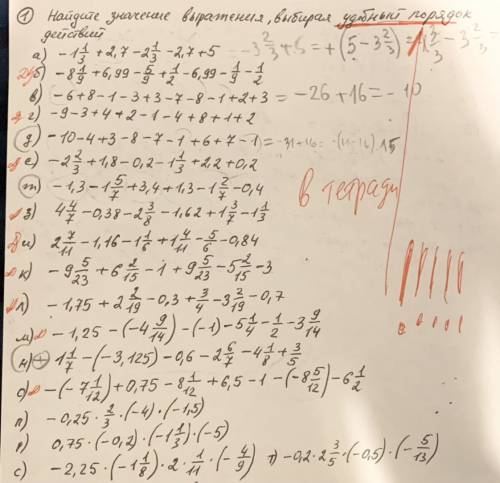 ① Найдите значение выражения, выбирая удобный порядок
действий
а) -1 1/3 + 2,7 - 2 1/3 - 2,7 + 5 -3 2/3 + 5 = + (5 - 3 2/3) =
б) -8 1/9 + 6,99 - 5/9 + 1/2 - 6,99 - 1/9 - 1/2
в) -6+8-1-3+3-7-8-1+2+3 = -26+16 = -10
г) -9-3+4+2-1-4+8+1+2
д) -10-4+3-8-7-1+6+7-1) = -31+16 = -(31-16) 15
е) -2 2/3 + 1,8 - 0,2 - 1 1/3 + 2,2 + 0,2
ж) -1,3 - 1 5/7 + 3,4 + 1,3 - 1 2/7 - 0,4
в тетради
з) 4 4/7 - 0,38 - 2 3/8 - 1,62 + 1 3/7 - 1 1/3
и) 2 7/11 - 1,16 - 1 1/6 + 1 4/11 - 5/6 - 0,84
к) -9 5/23 + 6 2/15 - 1 + 9 5/23 - 5 2/15 - 3
л) -1,75 + 2 2/19 - 0,3 + 3/4 - 3 2/19 - 0,7
м) -1,25 - (-4 9/14) - (-1) - 5 1/4 - 1/2 - 3 9/14
н) 1 1/7 - (-3,125) - 0,6 - 2 6/7 - 4 1/8 + 3/5
о) -(-7 1/12) + 0,75 - 8 1/12 + 6,5 - 1 - (-8 5/12) - 6 1/2
п) -0,25 · 2/3 · (-4) · (-1,5)
р) 0,75 · (-0,2) · (-1 1/3) · (-5)
с) -2,25 · (-1 1/8) · 2 · 1/11 · (-4/9) т) -0,2 · 2 3/5 · (-0,5) · (-5/13)